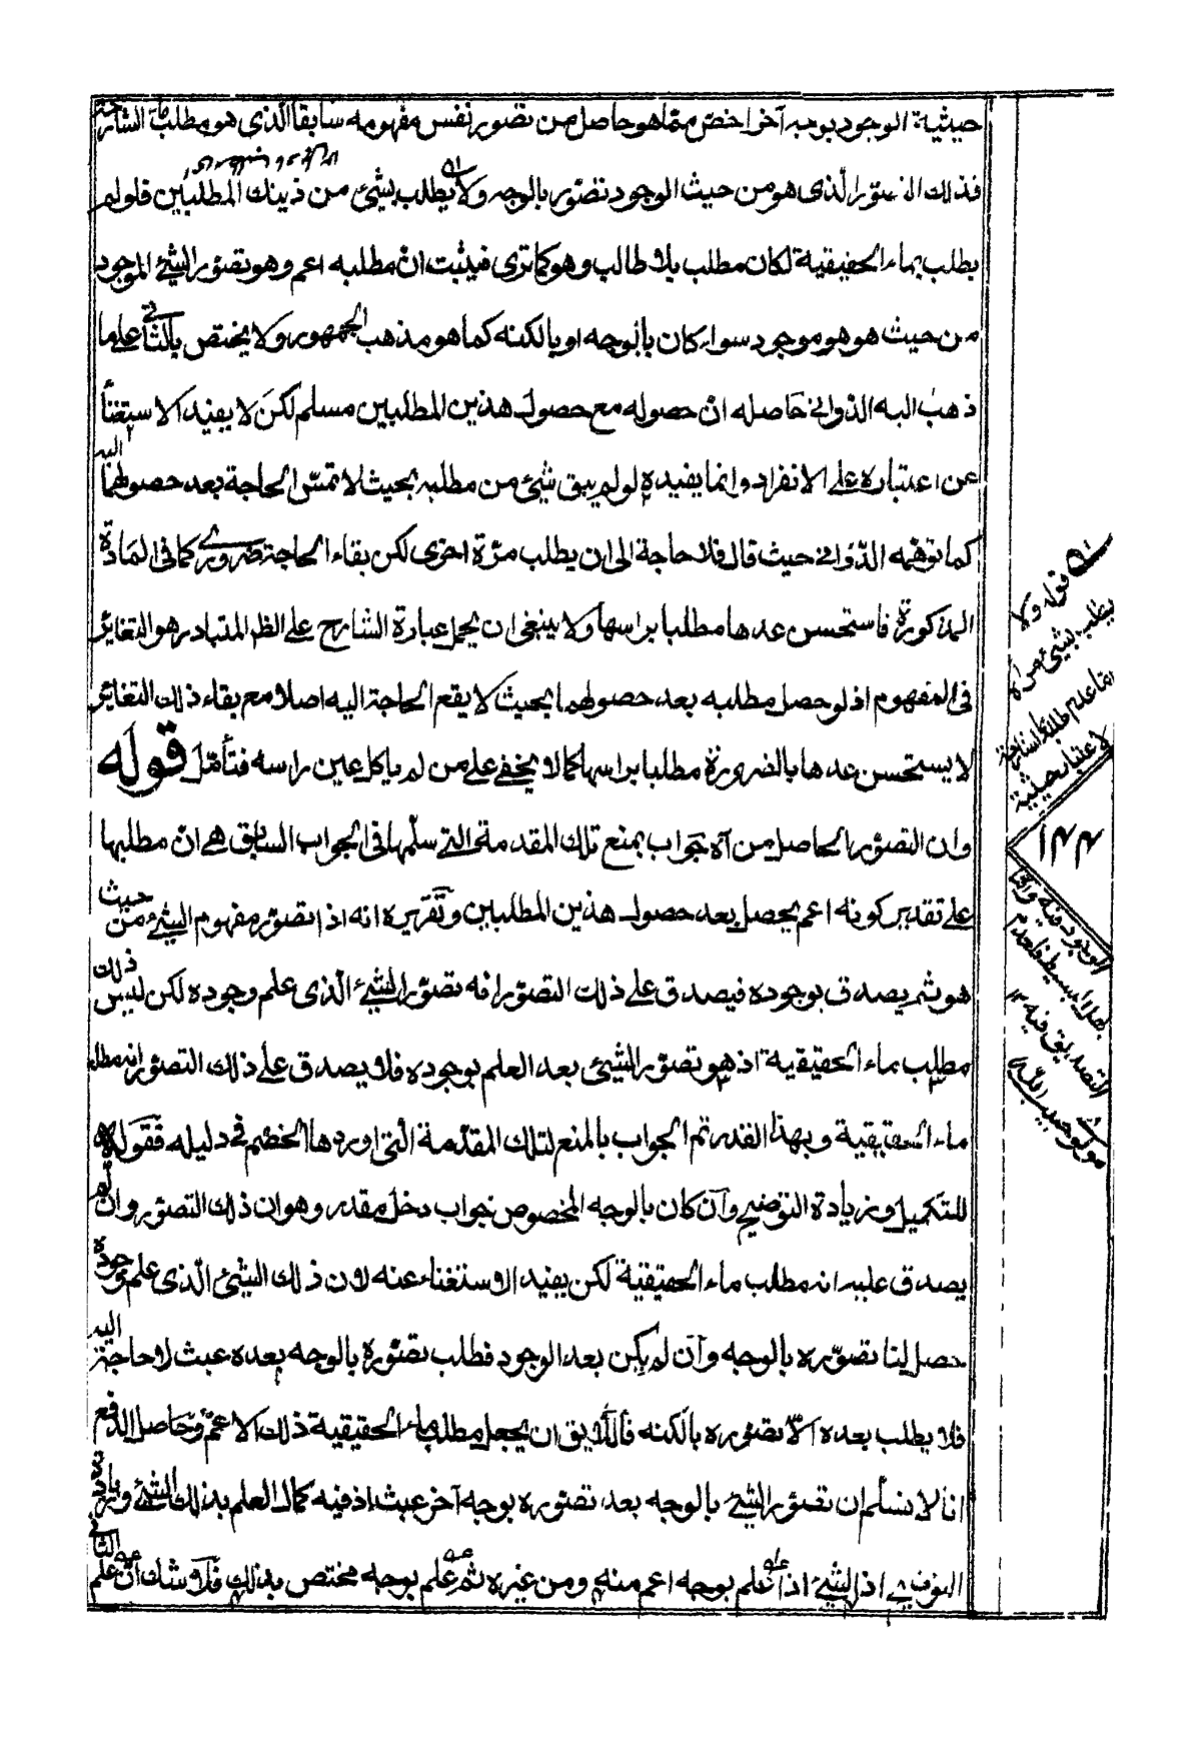 حيثية الوجود بوجه آخر اخص مما هو حاصل من تصور نفس مفهومه سابقا الذى هو مطلب ماء الشارحة
فذلك التصور الذى هو من حيث الوجود تصور بالوجه ولا يطلب بشئ من ذينك المطلبين فلو لم
يطلب بماء الحقيقية لكان مطلب بلا طالب وهو كما ترى فيثبت ان مطلبه اعم وهو تصور الشئ الموجود
من حيث هو هو موجود سواء كان بالوجه او بالكنه كما هو مذهب الجمهور ولا يختص بالثانى على ما
ذهب اليه الدوانى حاصله ان حصوله مع حصول هذين المطلبين مسلم لكن لا يفيد الاستغناء
عن اعتباره على الانفراد وانما يفيده لو لم يبق شئ من مطلبه بحيث لا تمس الحاجة بعد حصولهما اليه
كما توهمه الدوانى حيث قال فلا حاجة الى ان يطلب مرة اخرى لكن بقاء الحاجة ضرورى كما فى المادة
المذكورة فاستحسن عدها مطلبا براسها ولا ينبغى ان يحمل عبارة الشارح على الظم المتبادر هو التغائر
فى المفهوم اذ لو حصل مطلبه بعد حصولهما بحيث لا يقع الحاجة اليه اصلا مع بقاء ذلك التغائر
لا يستحسن عدها بالضرورة مطلبا براسها كما لا يخفى على من له ياكل عين راسه فتأمل قوله
وان التصور الحاصل من آه جواب بمنع تلك المقدمة التى سلمها فى الجواب السابق هى ان مطلبها
على تقدير كونه اعم يحصل بعد حصول هذين المطلبين وتقريره انه اذا تصور مفهوم الشئ من حيث
هو ثم يصدق بوجوده فيصدق على ذلك التصور انه تصور الشئ الذى علم وجوده لكن ليس ذلك
مطلب ماء الحقيقية اذ هو تصور الشئ بعد العلم بوجوده فلا يصدق على ذلك التصور انه مطلب
ماء الحقيقية وبهذا القدر تم الجواب بالمنع لتلك المقدمة التى اوردها الخصم فى دليله فقوله
للتكميل وزيادة التوضيح وان كان بالوجه المخصوص جواب دخل مقدر وهو ان ذلك التصور وان لم
يصدق عليه انه مطلب ماء الحقيقية لكن يفيد الاستغناء عنه لان ذلك الشئ الذى علم وجوده
حصل لنا تصوره بالوجه وان لم يكن بعد الوجود فطلب تصوره بالوجه بعده عبث لا حاجة اليه
فلا يطلب بعده الا تصوره بالكنه فاللايق ان يجعل مطلب ماء الحقيقية ذلك لا اعم وحاصل الدفع
انا لا نسلم ان تصور الشئ بالوجه بعد تصوره بوجه آخر عبث اذ فيه كمال العلم بذلك الشئ وزيادة
اذ الشئ اذا علم بوجه اعم منه ومن غيره ثم علم بوجه مختص بذلك فلا شك ان علم الثانى
قوله ولا
يطلب بشئ
لاعتبار حيثية
١٤٤
الوجود فيه واما
بهل البسيط فلعدم
التصديق فيه ١٢
مولوى حبيب الله